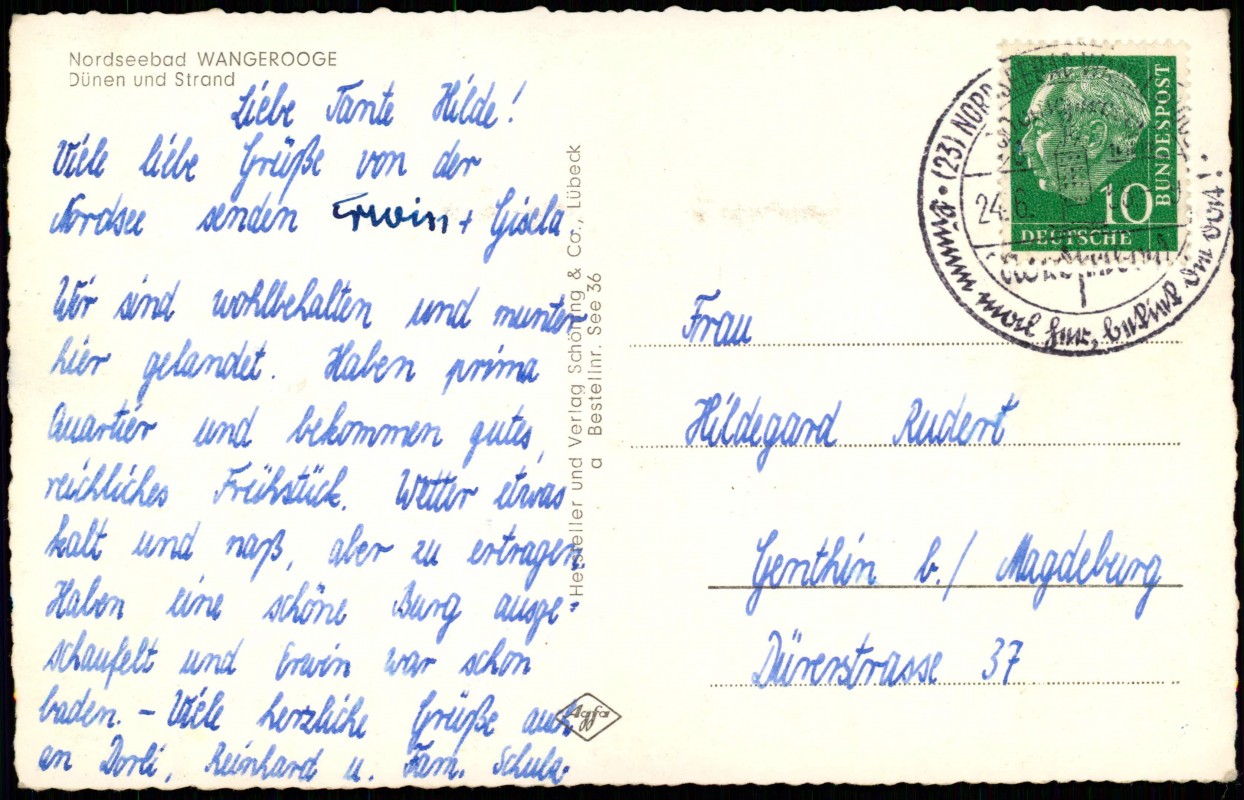 Nordseebad WANGEROOGE
Dünen und Strand
Liebe Tante Hilde!
Viele liebe Grüße von der
Nordsee senden Erwin + Gisela
Wir sind wohlbehalten und munter
hier gelandet. Haben prima
Quartier und bekommen gutes,
reichliches Frühstück. Wetter etwas
kalt und naß, aber zu ertragen
Haben eine schöne Burg ausge-
schaufelt und Erwin war schon
baden. – Viele herzliche Grüße auch
an Dorli, Reinhard u. Fam. Schulz
Hersteller und Verlag Schöning & Co., Lübeck
a Bestellnr. See 36
Agfa
(23) NORDSEEBAD
24.6.
10
BUNDESPOST
DEUTSCHE
Frau
Hildegard Rudert
Genthin b./ Magdeburg
Dürerstrasse 37